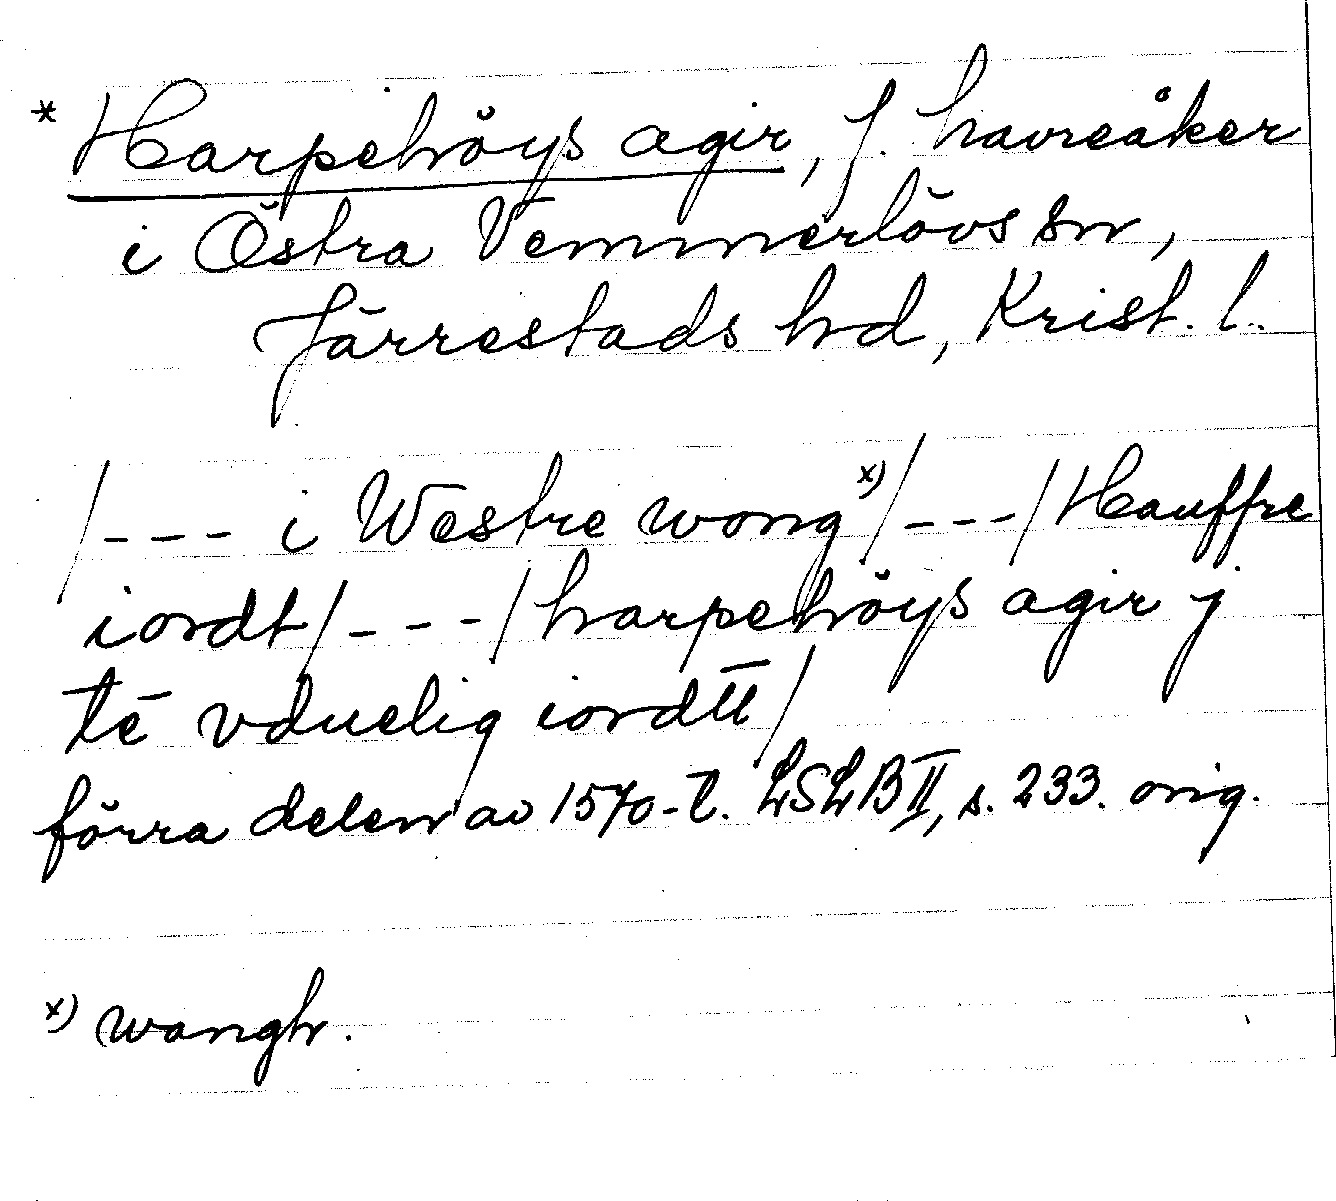 * Harpehöys agir, f. havreåker
i Östra Vemmerlövs sn,
Järrestads hd, Krist. l.
/--- i Westre wong x)/---/Hauffre
iordt/---/harpehöys agir j
tē vduelig iordtt/
förra delen av 1570-t. LSLB II, s. 233. orig.
x) wangh.